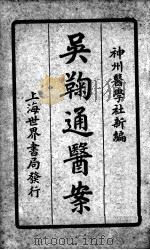 神州醫學社新編
吳鞠通醫案
上海世界書局發行